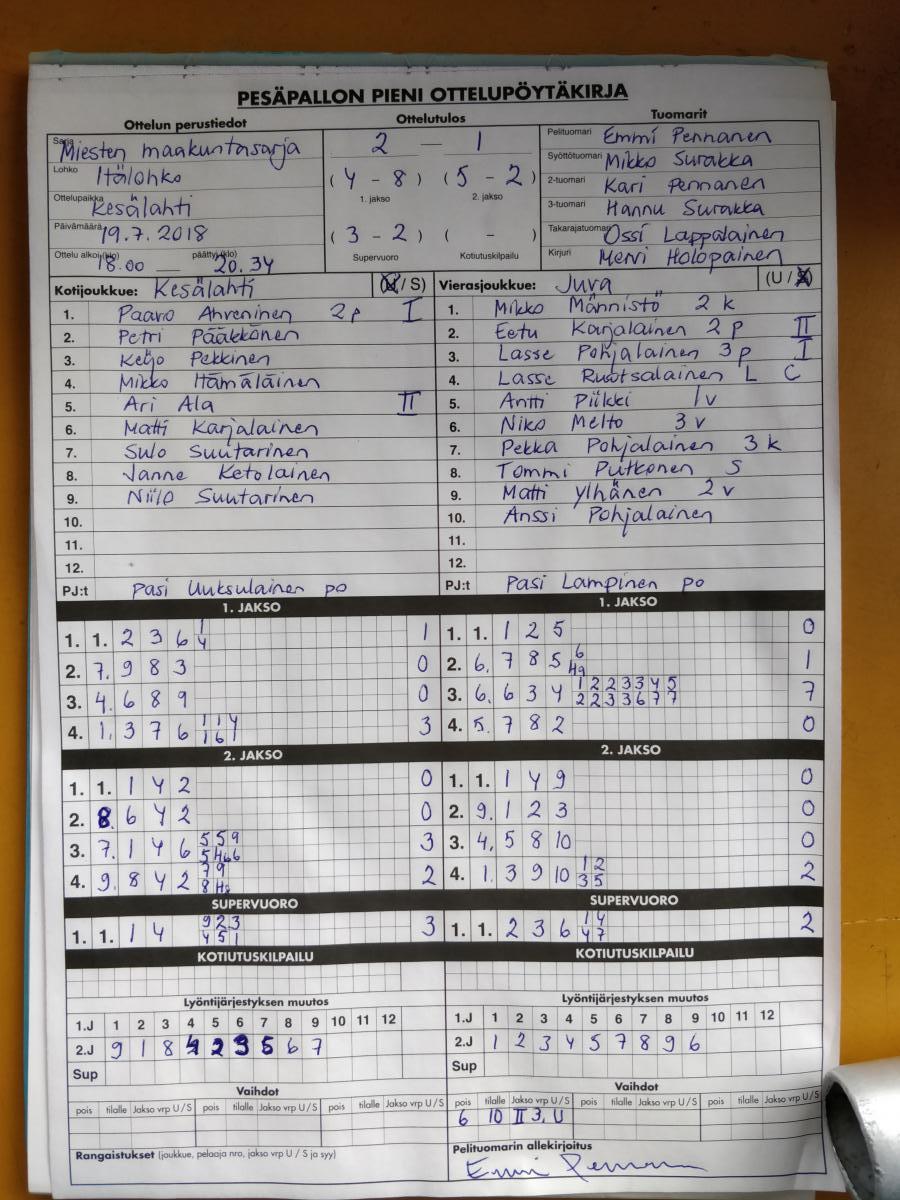 PESÄPALLON PIENI OTTELUPÖYTÄKIRJA
Ottelun perustiedot Ottelutulos Tuomarit
Sarja Miesten maakuntasarja 2 — 1 Pelituomari Emmi Pennanen
Lohko Itälohko ( 4 - 8 ) ( 5 - 2 ) Syöttötuomari Mikko Surakka
1. jakso 2. jakso 2-tuomari Kari Pennanen
Ottelupaikka Kesälahti 3-tuomari Hannu Surakka
Päivämäärä 19.7.2018 ( 3 - 2 ) ( - ) Takarajatuomari Ossi Lappalainen
Ottelu alkoi (klo) 18.00 — päättyi (klo) 20.34 Supervuoro Kotiutuskilpailu Kirjuri Mervi Holopainen
Kotijoukkue: Kesälahti (U / S) Vierasjoukkue: Juva (U / S)
1. Paavo Ahveninen 2p I 1. Mikko Männistö 2 k
2. Petri Pääkkönen 2. Eetu Karjalainen 2 p II
3. Keijo Pekkinen 3. Lasse Pohjalainen 3 p I
4. Mikko Hämäläinen 4. Lasse Ruotsalainen L C
5. Ari Ala II 5. Antti Piikki 1v
6. Matti Karjalainen 6. Niko Melto 3 v
7. Sulo Suutarinen 7. Pekka Pohjalainen 3 k
8. Janne Ketolainen 8. Tommi Putkonen S
9. Niilo Suutarinen 9. Matti Ylhänen 2 v
10. 10. Anssi Pohjalainen
11. 11.
12. 12.
PJ:t Pasi Uuksulainen po PJ:t Pasi Lampinen po
1. JAKSO 1. JAKSO
1. 1. 2 3 6 1/4 1 1. 1. 1 2 5 0
2. 7. 9 8 3 0 2. 6. 7 8 5 6/H9 1
3. 4. 6 8 9 0 3. 6. 6 3 4 1/2 2/2 2/3 3/3 3/6 4/7 5/7 7
4. 1. 3 7 6 1/1 1/6 4/1 3 4. 5. 7 8 2 0
2. JAKSO 2. JAKSO
1. 1. 1 4 2 0 1. 1. 1 4 9 0
2. 8. 6 4 2 0 2. 9. 1 2 3 0
3. 7. 1 4 6 5/5 5/H6 9/6 3 3. 4. 5 8 10 0
4. 9. 8 4 2 7/8 9/H8 2 4. 1. 3 9 10 1/3 2/5 2
SUPERVUORO SUPERVUORO
1. 1. 1 4 9/4 2/5 3/1 3 1. 1. 2 3 6 1/4 4/7 2
KOTIUTUSKILPAILU KOTIUTUSKILPAILU
Lyöntijärjestyksen muutos Lyöntijärjestyksen muutos
1.J 1 2 3 4 5 6 7 8 9 10 11 12 1.J 1 2 3 4 5 6 7 8 9 10 11 12
2.J 9 1 8 4 2 3 5 6 7 2.J 1 2 3 4 5 7 8 9 6
Sup Sup
Vaihdot Vaihdot
pois tilalle Jakso vrp U / S pois tilalle Jakso vrp U / S pois tilalle Jakso vrp U / S pois tilalle Jakso vrp U / S pois tilalle Jakso vrp U / S pois tilalle Jakso vrp U / S
6 10 II 3. U
Rangaistukset (joukkue, pelaaja nro, jakso vrp U / S ja syy) Pelituomarin allekirjoitus
Emmi Pennanen